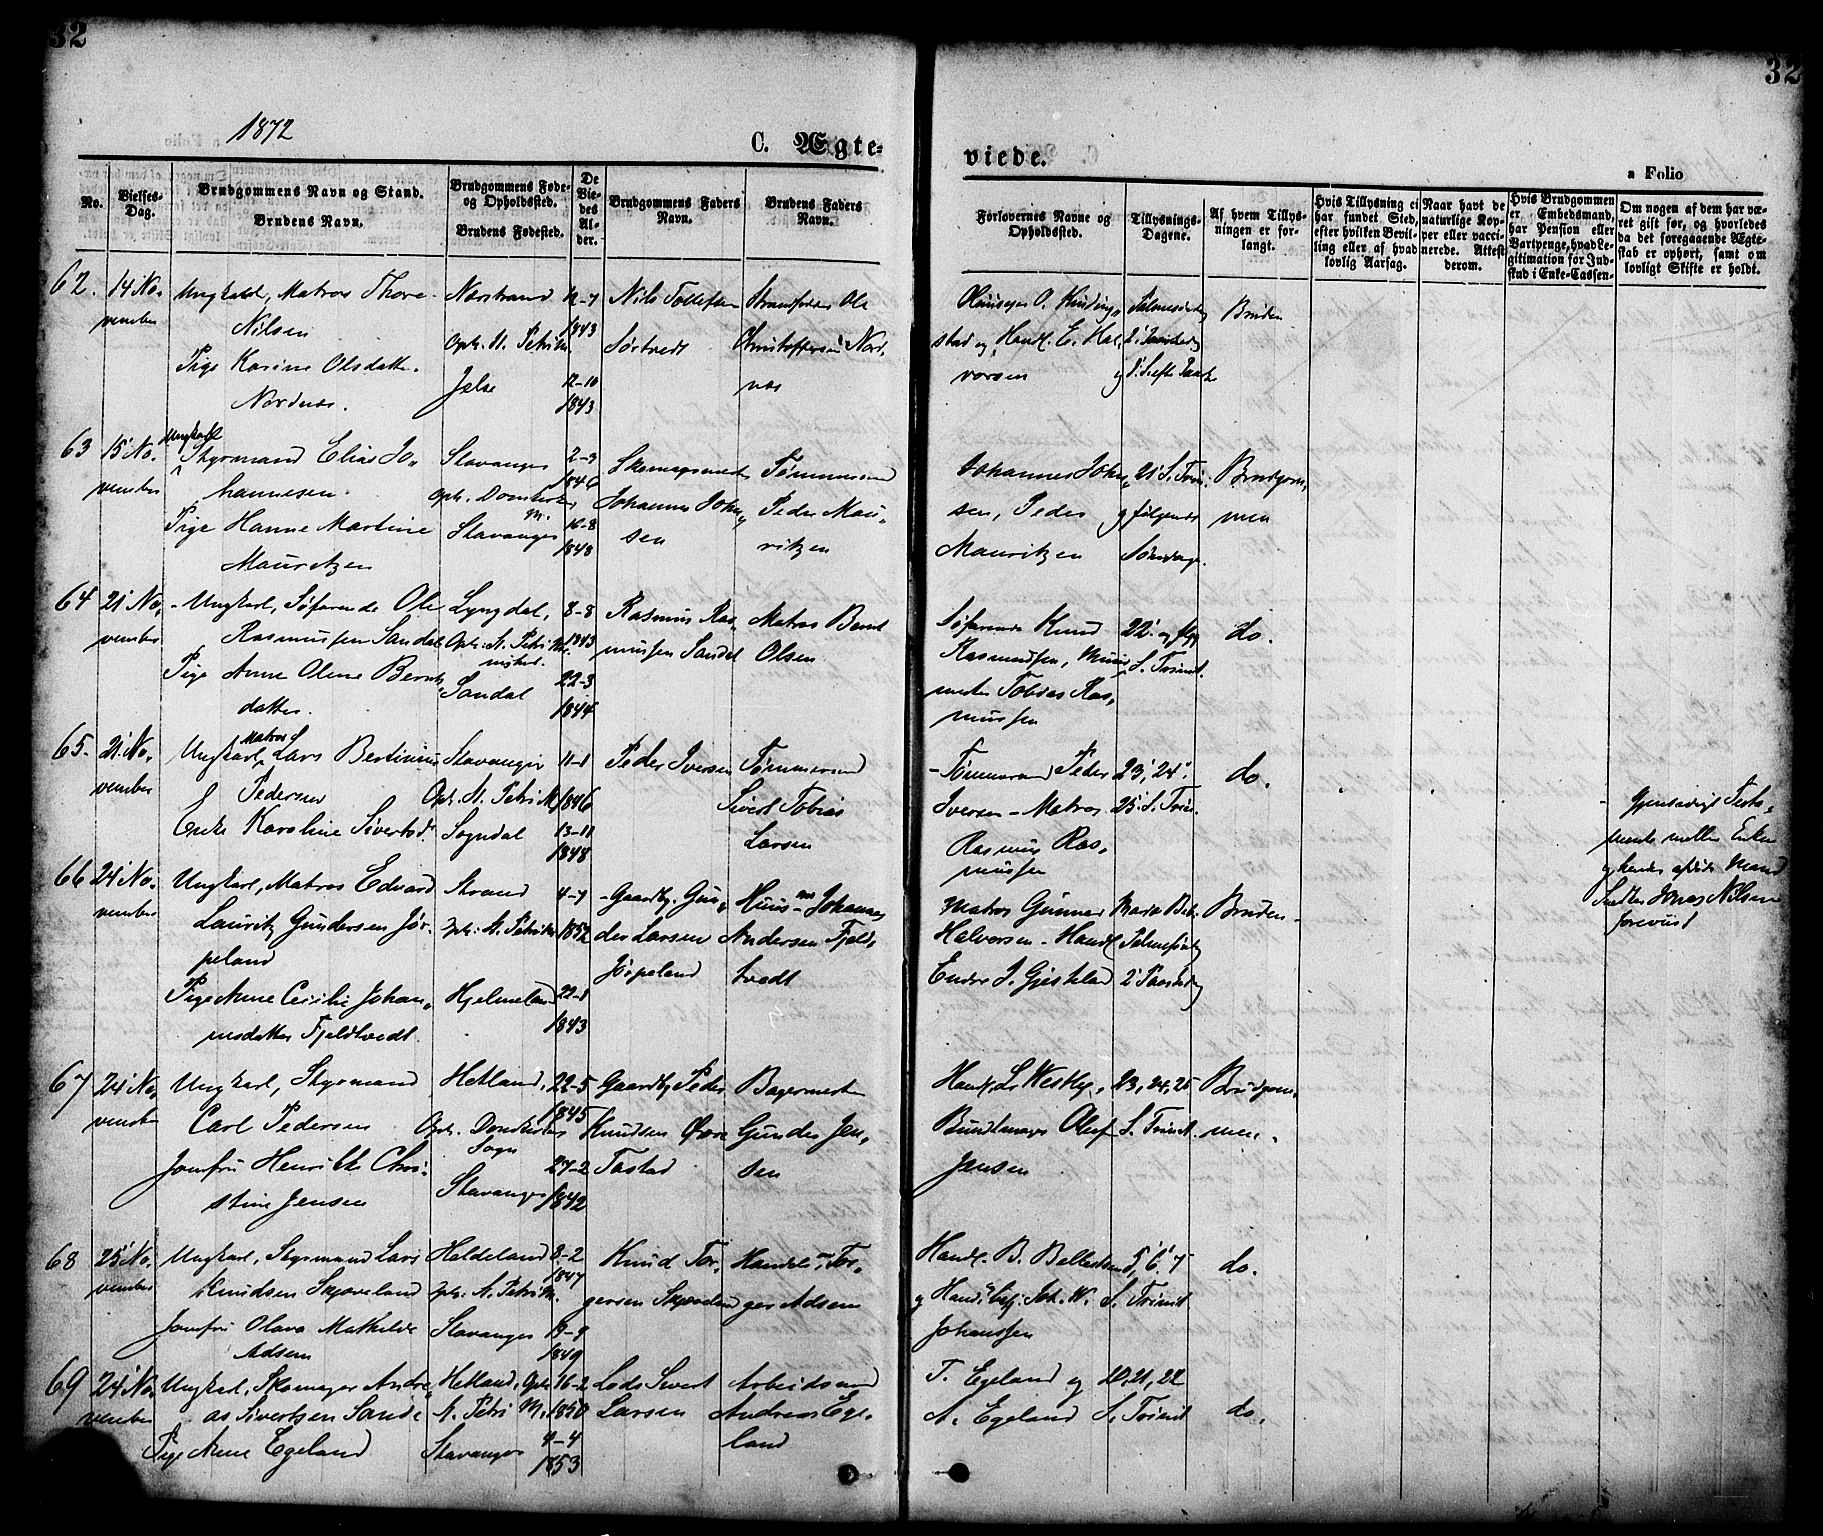 32
32
1872
C. Ægte-
viede.
a Folio
No.
Vielses-
Dag.
Brudgommens Navn og Stand.
Brudens Navn.
Brudgommens Føde-
og Opholdssted.
Brudens Fødested.
De
Vie-
des
Al-
der.
Brudgommens Faders
Navn.
Brudens Faders
Navn.
Forlovernes Navne og
Opholdssted.
Tillysnings-
Dagene.
Af hvem Tillys-
ningen er for-
langt.
Hvis Tillysning ei
har fundet Sted,
efter hvilken Bevil-
ling eller af hvad
lovlig Aarsag.
Naar havt de
naturlige Kop-
per eller vacci-
nerede. Attest
derom.
Hvis Brudgommen
er Embedsmand,
har Pension eller
Vartpenge, hvad Le-
gitimation for Ind-
skud i Enke-Cassen-
Om nogen af dem har væ-
ret gift før, og hvorledes
da det foregaaende Ægte-
skab er ophørt, samt om
lovligt Skifte er holdt.
62.
14 No-
vember
Ungkarl, Matros Thore
Nilsen
Pige Karine Olsdatter
Nordnæs.
Nærstrand
Oph. St. Petri M.
Jelse
12-7
1843
12-10
1843
Nils Tollefsen
Sørtvedt
Strandsidder Ole
Christoffersen Nord-
næs
stad og Handl. E. Hal-
vorsen
Bruden
63
15 No-
vember
Ungkarl
Styrmand Elias Jo-
hannesen.
Pige Hanne Martine
Mauritzen
Stavanger
Oph. Domkirkens
M.
Stavanger
2-3
1846
16-8
1848
Skomagermester
Johannes John-
sen
Tømmermand
Peder Mau-
ritzen
Johannes John-
sen, Peder
Mauritzen
21 S. Trin.
og følgende
Søndage.
Brudgom-
men
64
21 No-
vember
Ungkarl, Søfarende Ole
Rasmussen Sandal
Pige Anne Olene Bernts-
datter.
Lyngdal,
Oph. St. Petri M.
Sandal
8-8
1843
22-3
1844
Rasmus Ras-
mussen Sandal
Matros Bernt
Olsen
Søfarende Knud
Rasmussen, Muur-
mester Tobias Ras-
mussen
22 og flg.
S. Trinit.
do.
65.
21 No-
vember
Matros
Ungkarl Lars Bertinius
Pedersen
Enke Karoline Sivertsd.
Stavanger
Oph. St. Petri M.
Sogndal
11-1
1846
13-11
1848
Peder Iversen
Tømmermand
Sivert Tobias
Larsen
Tømmermand Peder
Iversen - Matros
Rasmus Ras-
mussen
23, 24,
25 S. Trin.
do.
Gjensidigt Testa-
mente mellem Enken
og hendes afdøde Mand
Jonas Nilsen
forevist
66
24 No-
vember
Ungkarl, Matros Edvard
Lauritz Gundersen Jør-
peland
Pige Anne Cecilie Johan-
nesdatter Fjeldtvedt.
Strand
Oph. St. Petri M.
Hjelmeland
4-7
1852
22-1
1843
Gaardbr. Gun-
der Larsen
Jørpeland
Huusmd Johannes
Andersen Fjeld-
tvedt
Matros Gunnar
Halvorsen - Handl.
Maria Beb.
2 Paaskedag
Bruden
67
24 No-
vember
Ungkarl, Styrmand
Carl Pedersen
Jomfru Henrikke Chri-
stine Jensen
Hetland,
Oph. Domkirkens
Sogn
Stavanger
22-5
1845
27-2
1842
Gaardbr. Peder
Knudsen Øvre
Tastad
Bagermester
Gunder Jen-
sen
Handl. L. Westbye,
Buntmager Oluf
Jensen
23, 24, 25
S. Trinit.
Brudgom-
men.
68
25 No-
vember
Ungkarl, Styrmand Lars
Knudsen Skjæveland
Jomfru Olava Mathilde
Adsen
Høldeland
Oph. St. Petri M.
Stavanger
8-2
1847
19-9
1849
Knud Tor-
gersen Skjæveland
Handelsm. Tor-
ger Adsen
Handl. B. Bellesen
og Handl.bestj. Joh. W.
Johanssen
5, 6, 7
S. Trinit
do.
69
24 No-
vember
Ungkarl, Skomager Andre-
as Sivertsen Sande
Pige Anne Egeland
Hetland, Oph.
St. Petri M.
Stavanger
16-2
1850
4-4
1853
Lods Sivert
Larsen
Arbeidsmand
Andreas Ege-
land
T. Egeland og
A. Egeland
20, 21, 22
S. Trinit
do.